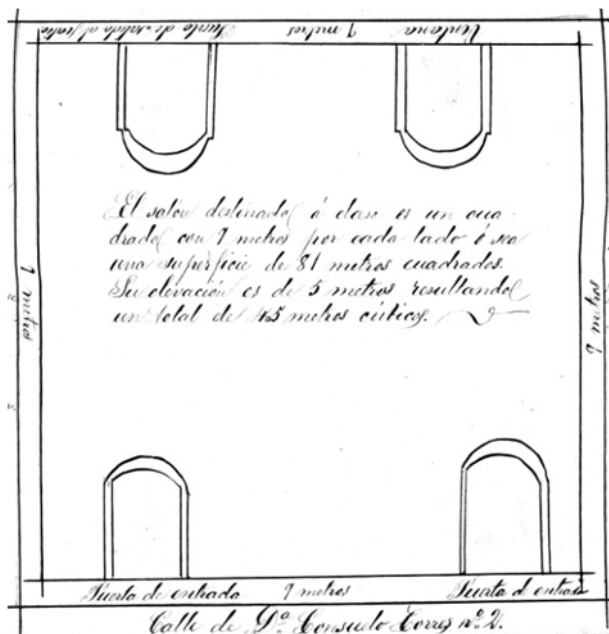 Puerta de salida al patio 9 metros Ventana
El salón destinado á clase es un cua-
drado con 9 metros por cada lado ó sea
una superficie de 81 metros cuadrados.
Su elevación es de 5 metros resultando
un total de 405 metros cúbicos.
9 metros
9 metros
Puerta de entrada 9 metros Puerta de entrada
Calle de Dª Consuelo Torres nº 2.